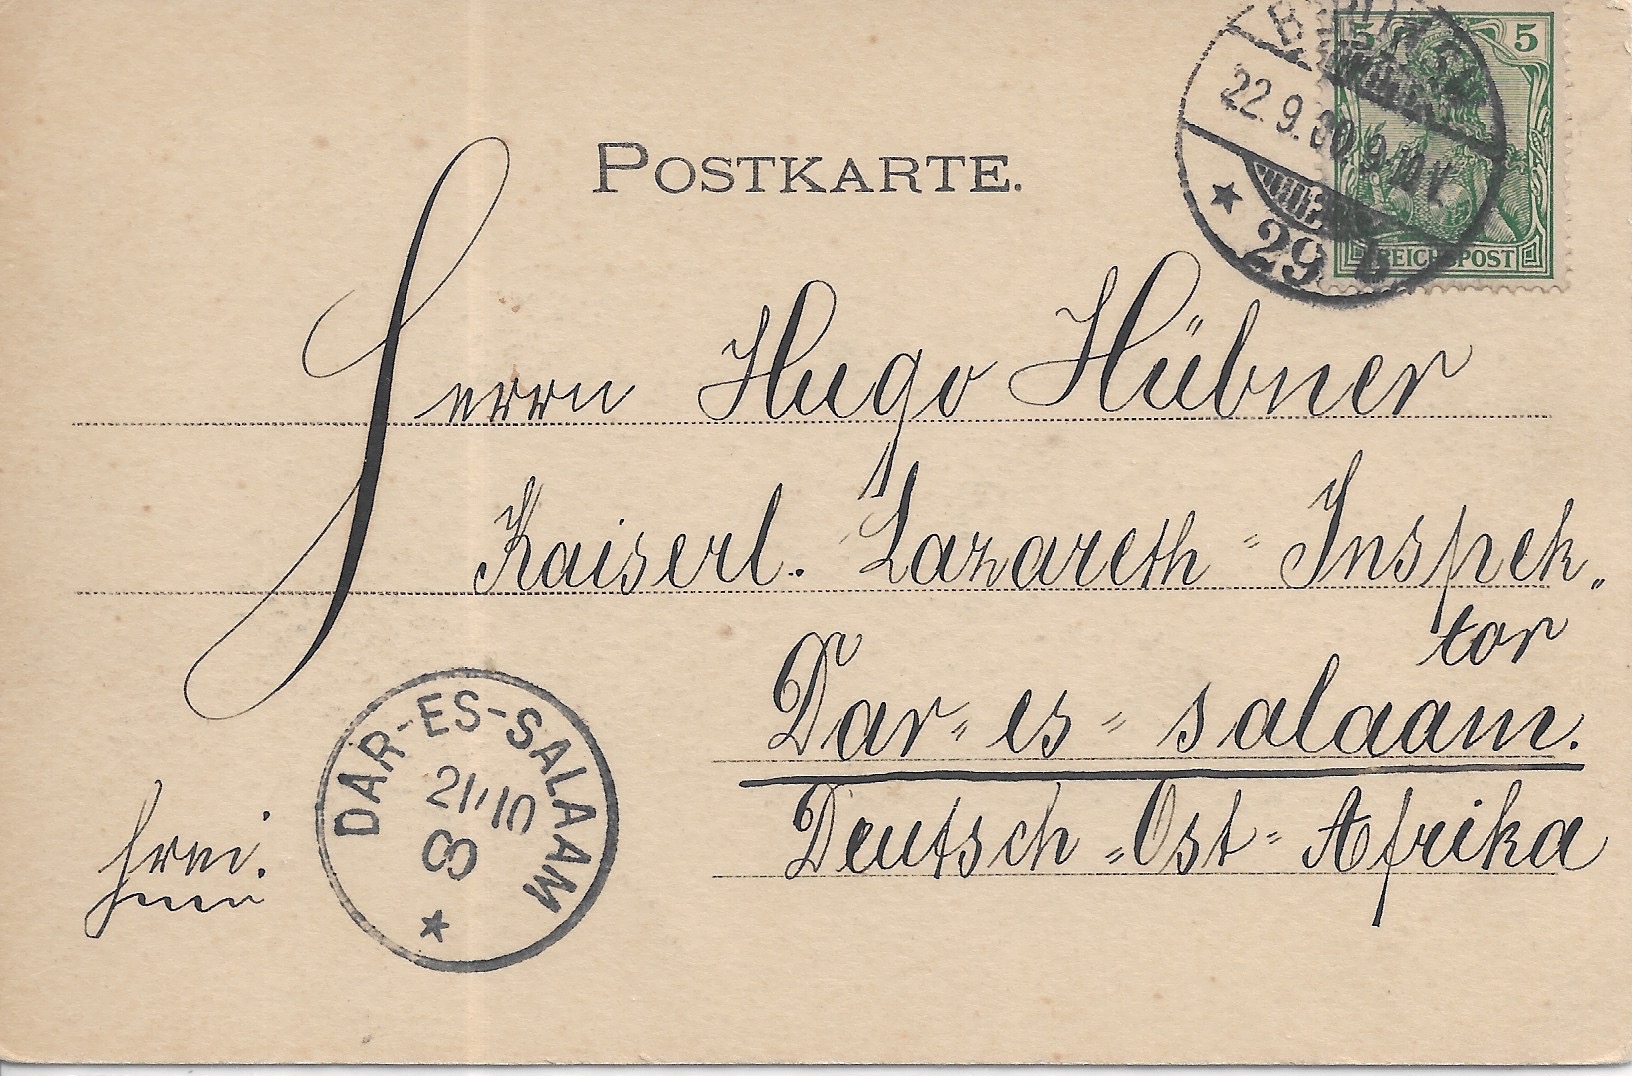 5 5
22.9.00 9-10 V.
29 b
REICHSPOST
POSTKARTE.
Herrn Hugo Hübner
Kaiserl. Lazareth-Inspek„
tor
Dar-es-salaam.
Deutsch-Ost-Afrika
frei.
DAR-ES-SALAAM
21/10
00